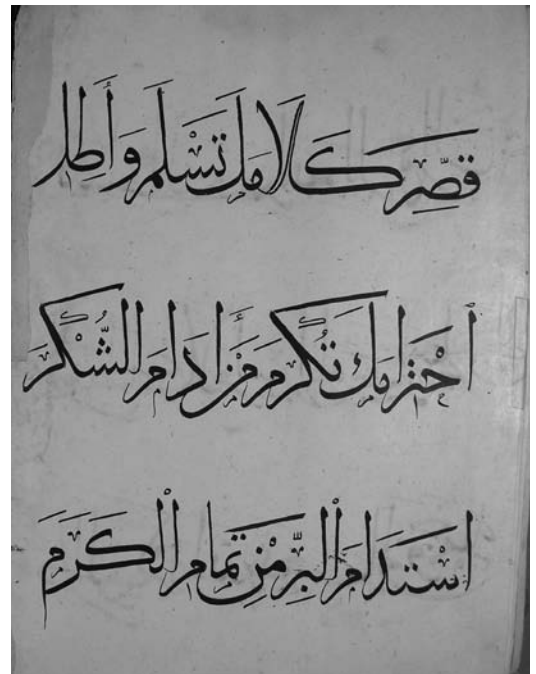 قَصِّر كَلَامَك تَسْلَم وَأَطِل
احْتِرامَك تُكْرَم مَنْ أَدامَ الشُّكْرَ
اسْتَدَامَ الْبِرَّ مِنْ تَمامِ الْكَرَمِ